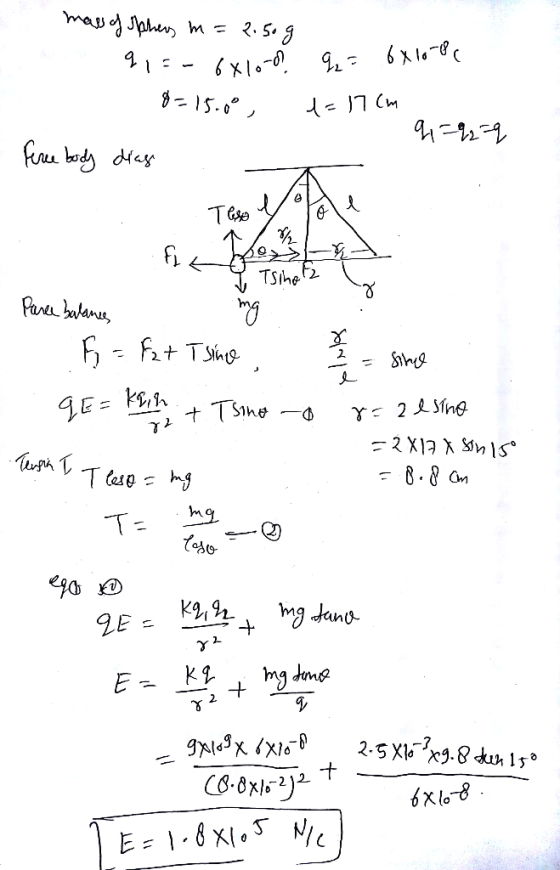 mass of sphere, m = 2.50 g
q1 = - 6×10-8. q2 = 6×10-8 C
θ = 15.0°, l = 17 cm
q1 = q2 = q
Free body diag
θ θ l l
T cosθ
r/2
F1 θ r/2
T sinθ F2 r
mg
Force balance,
F1 = F2 + T sinθ, r/2 / l = sinθ
qE = kq1q2/r² + T sinθ —① r = 2 l sinθ
= 2×17× sin 15°
= 8.8 cm
Tension T cosθ = mg
T = mg/cosθ —②
eq ① ②
qE = kq1q2/r² + mg tanθ
E = kq/r² + mg tanθ/q
= 9×10⁹ × 6×10-8/(8.8×10-2)² + 2.5×10-3×9.8 tan 15°/6×10-8.
E = 1.8×10⁵ N/C